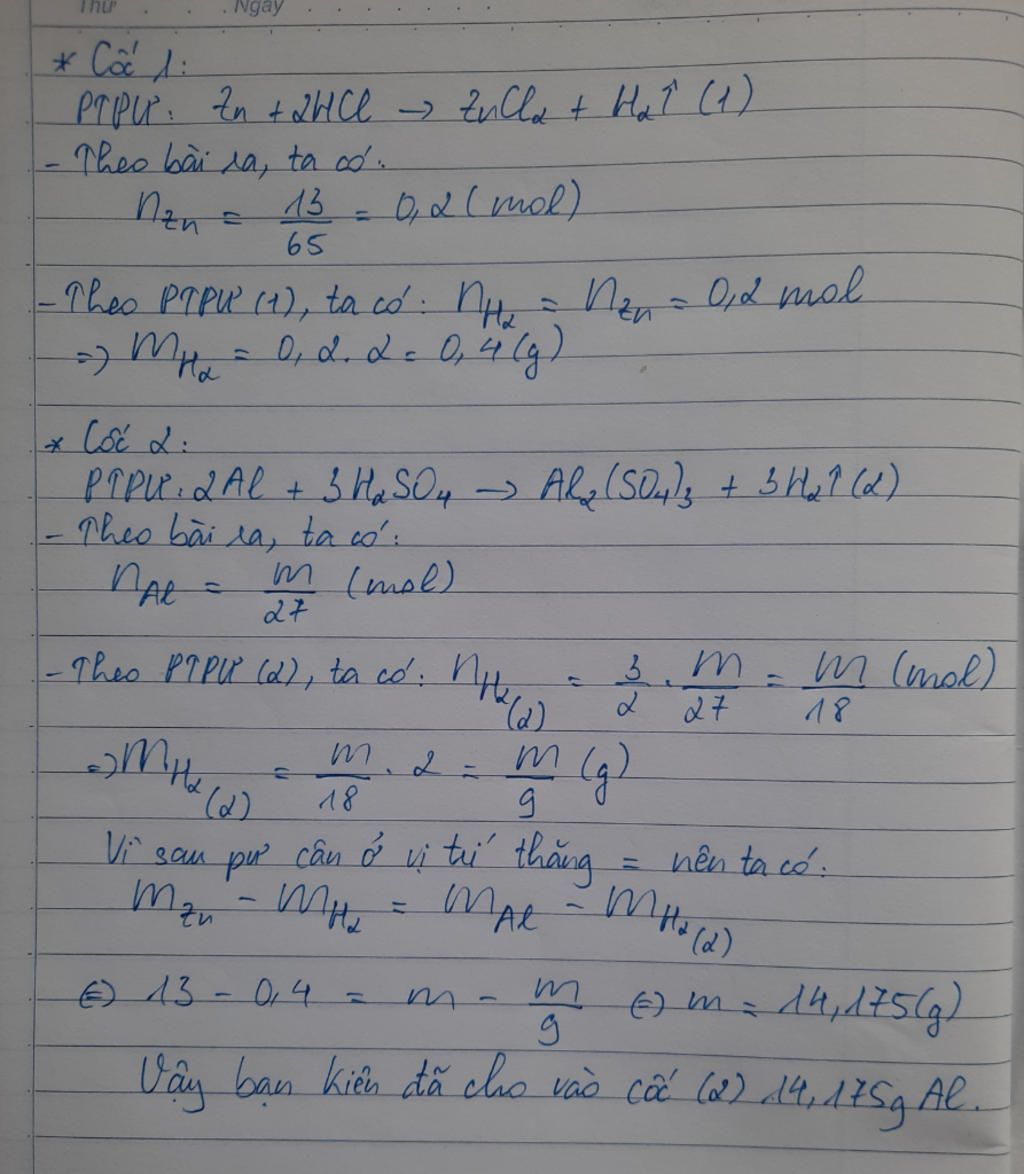 Thứ . . . Ngày . . . . . .
* Cốc 1:
PTPƯ: Zn + 2HCl → ZnCl₂ + H₂↑ (1)
- Theo bài ra, ta có:
n_Zn = 13/65 = 0,2 (mol)
- Theo PTPƯ (1), ta có: n_H₂ = n_Zn = 0,2 mol
=> m_H₂ = 0,2.2 = 0,4 (g)
* Cốc 2:
PTPƯ: 2Al + 3H₂SO₄ → Al₂(SO₄)₃ + 3H₂↑ (2)
- Theo bài ra, ta có:
n_Al = m/27 (mol)
- Theo PTPƯ (2), ta có: n_H₂(2) = 3/2 . m/27 = m/18 (mol)
=> m_H₂(2) = m/18 . 2 = m/9 (g)
Vì sau pư cân ở vị trí thăng = nên ta có:
m_Zn - m_H₂ = m_Al - m_H₂(2)
⇔ 13 - 0,4 = m - m/9 ⇔ m = 14,175(g)
Vậy bạn Kiên đã cho vào cốc (2) 14,175g Al.